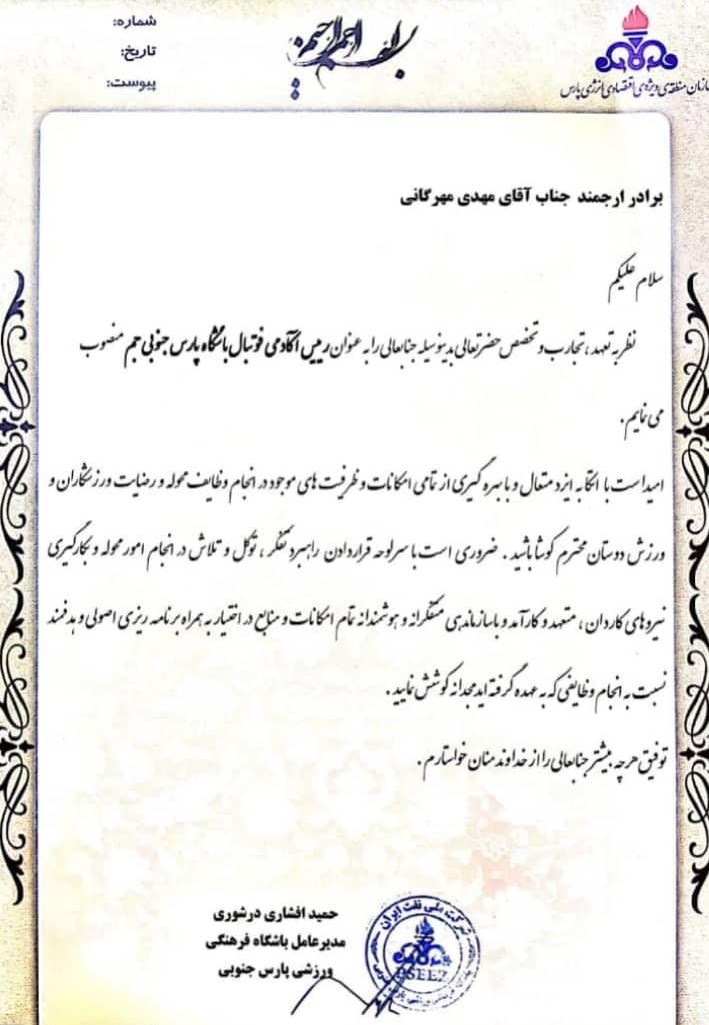 بسم الله الرحمن الرحیم
شماره:
تاریخ:
پیوست:
سازمان منطقه‌ی ویژه‌ی اقتصادی انرژی پارس
برادر ارجمند جناب آقای مهدی مهرگانی
سلام علیکم
نظر به تعهد، تجارب و تخصص حضرتعالی بدینوسیله جنابعالی را به عنوان رییس آکادمی فوتبال باشگاه پارس جنوبی جم منصوب
می نمایم.
امید است با اتکا به ایزد متعال و با بهره گیری از تمامی امکانات و ظرفیت های موجود در انجام وظایف محوله و رضایت ورزشکاران و
ورزش دوستان محترم کوشا باشید. ضروری است با سرلوحه قرار دادن راهبرد تفکر، توکل و تلاش در انجام امور محوله و بکارگیری
نیروهای کاردان، متعهد و کارآمد و با سازماندهی متفکرانه و هوشمندانه تمام امکانات و منابع در اختیار به همراه برنامه ریزی اصولی و هدفمند
نسبت به انجام وظایفی که به عهده گرفته اید مجدانه کوشش نمایید.
توفیق هرچه بیشتر جنابعالی را از خداوند منان خواستارم.
حمید افشاری درشوری
مدیرعامل باشگاه فرهنگی
ورزشی پارس جنوبی
شرکت ملی نفت ایران
PSEEZ